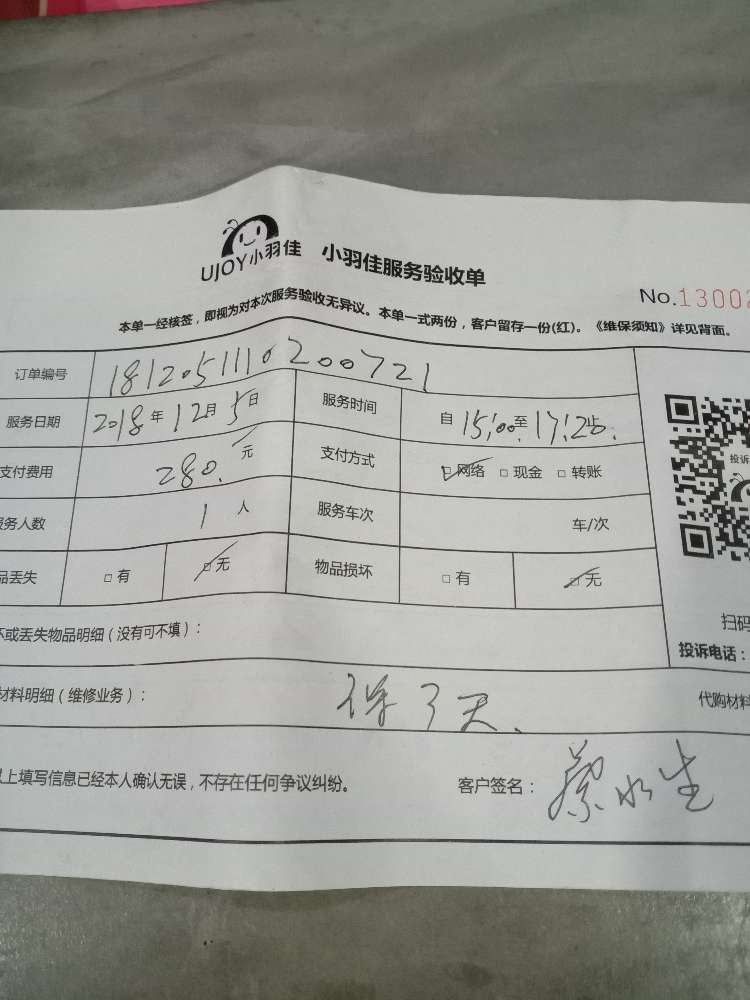 UJOY小羽佳 小羽佳服务验收单
No.13002
本单一经核签，即视为对本次服务验收无异议。本单一式两份，客户留存一份(红)。《维保须知》详见背面。
订单编号 1812051110200721
服务日期 2018年12月5日 服务时间 自15:00至17:20止
支付费用 280.元 支付方式 □网络 □现金 □转账
服务人数 1人 服务车次 车/次
品丢失 □有 □无 物品损坏 □有 □无
投诉
坏或丢失物品明细（没有可不填）：
扫码
投诉电话：
材料明细（维修业务）： 保3天、
代购材料
以上填写信息已经本人确认无误，不存在任何争议纠纷。 客户签名：蔡水生